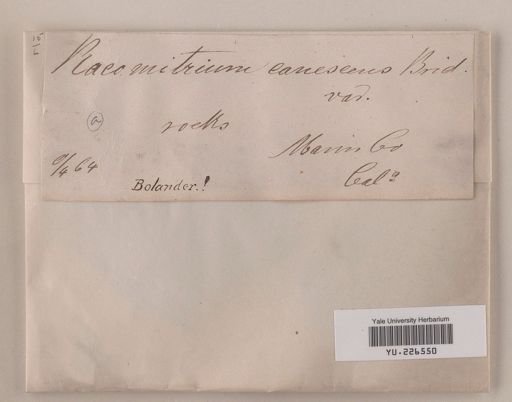 Racomitrium canescens Brid.
var.
a
rocks
Marin Co
Cala
64
Bolander.!
Yale University Herbarium
YU-226550